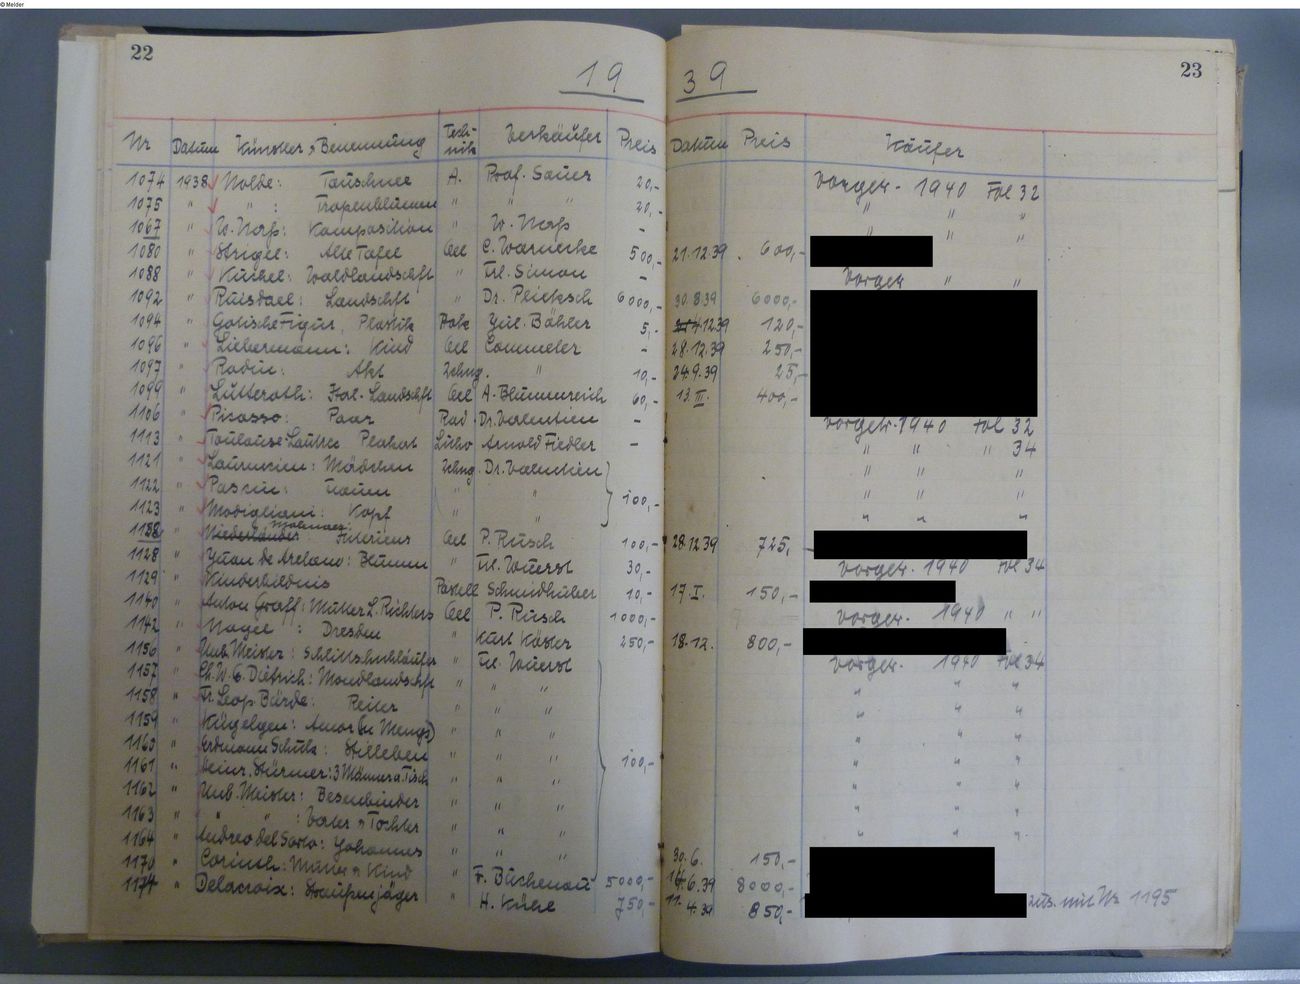 © Melder
22
23
19 39
Nr Datum Künstler, Benennung Tech-nik Verkäufer Preis Datum Preis Käufer
1074 1938 Nolde: Tauschnee A. Prof. Sauer 20,- vorgetr. 1940 Fol 32
1075 " " : Tropenblumen " " " 20,- " " "
1067 " W. Naß: Komposition " W. Naß - " " "
1080 " Strigel: Alte Tafel Oel C. Warnecke 500,- 21.12.39 600,-
1088 " Kuchel: Waldlandschft " Frl. Simon - vorgetr " "
1092 " Ruisdael: Landschft " Dr. Plietzsch 6000,- 30.8.39 6000,-
1094 " Gotische Figur, Plastik Jul. Böhler 5,- 4.12.39 120,-
1096 " Liebermann: Kind Oel Commeter - 28.12.39 250,-
1097 " Rodin: Akt Zchng. " 10,- 24.9.39 25,-
1099 " Lutteroth: Ital. Landschft Oel A. Blumenreich 60,- 13.III. 400,-
1106 " Picasso: Paar Rad. Dr. Valentien - vorgetr. 1940 Fol 32
1113 " Toulouse-Lautrec Plakat Litho Arnold Fiedler - " " " 34
1121 " Laurencin: Mädchen Zchng. Dr. Valentien " " "
1122 " Pascin: " " 100,- " " "
1123 " Modigliani: Kopf " " " " "
1138 " Niederländer: Molenaer: Interieur Oel P. Rusch 100,- 28.12.39 725,-
1128 " Juan de Arelano: Blumen " Frl. Wuerst 30,- vorgetr. 1940 Fol 34
1129 " Kinderbildnis Pastell Schmidhuber 10,- 17.I. 150,-
1140 " Anton Graff: Mutter L. Richters Oel P. Rusch 1000,- vorgetr. 1940 " "
1142 " Nagel: Dresden " Kurt Köster 250,- 18.12. 800,-
1156 " Unb. Meister: Schlittschuhläufer " Frl. Wuerst vorgetr. 1940 Fol 34
1157 " Ch. W. E. Dietrich: Mondlandschft " " " " " "
1158 " Fr. Leop. Bürde: Reiter " " " " " "
1159 " Kügelgen: Amor (n. Mengs) " " " " " "
1160 " Erdmann Schultz: Stilleben " " " " " "
1161 " Heinr. Stürmer: 3 Männer a. Tisch " " " 100,- " " "
1162 " Unb. Meister: Besenbinder " " " " " "
1163 " " " : Vater u Tochter " " " " " "
1164 " Andrea del Sarto: Johannes " " " 30.6. 150,-
1170 " Corinth: Mutter u Kind " F. Buchenau 5000,- 14.6.39 8000,-
1174 " Delacroix: " H. Kühl 750,- 11.4.39 850,- mit Nr. 1195